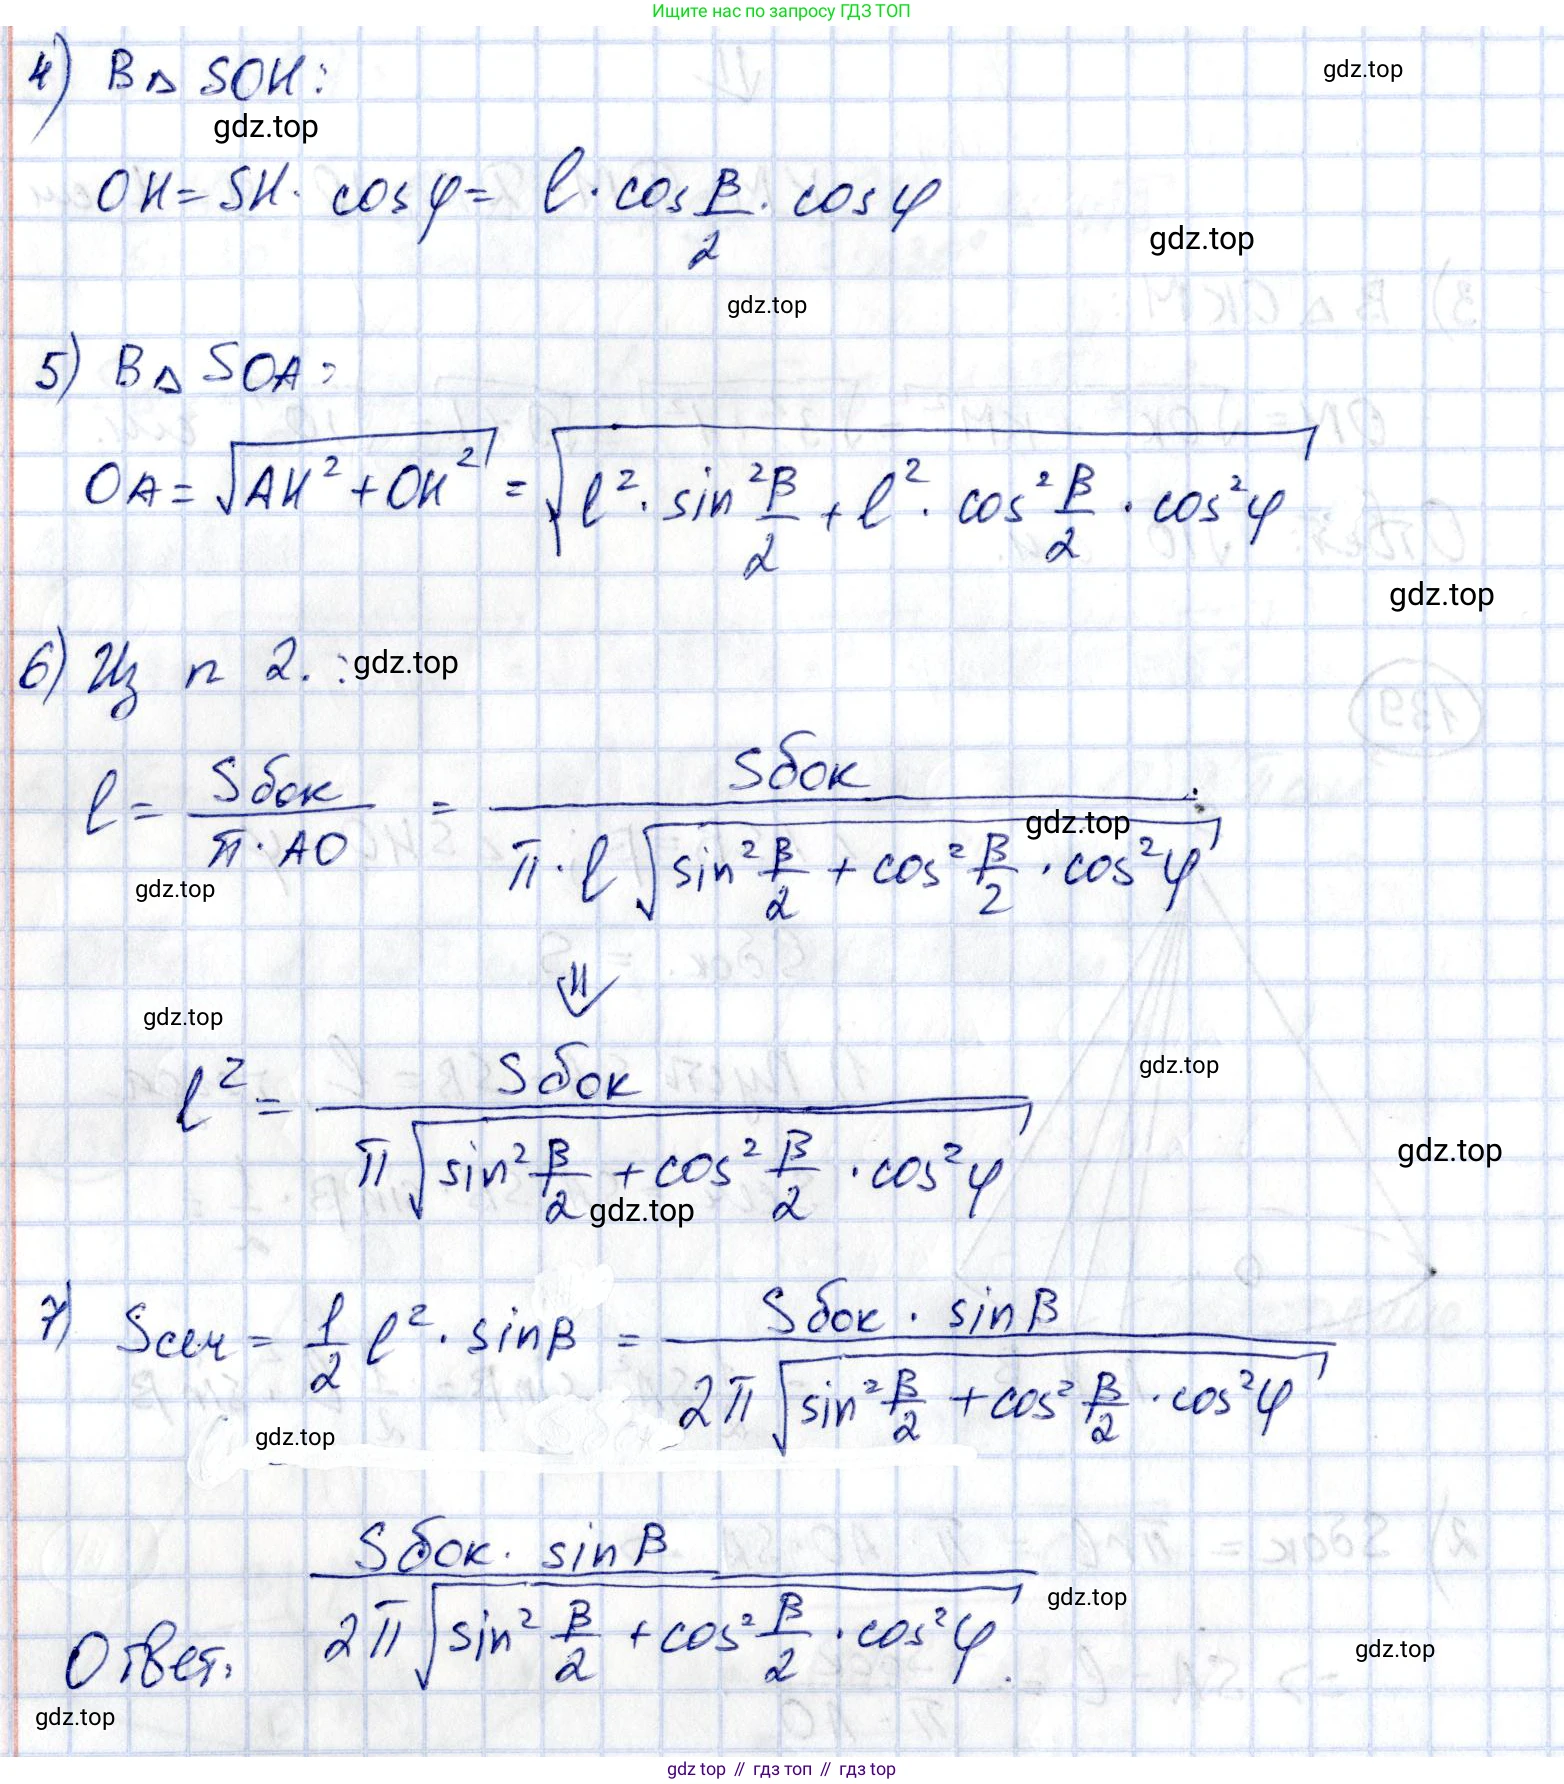 Ищите нас по запросу ГДЗ ТОП
4) В △ SOH:
gdz.top
gdz.top
OH = SH · cos φ = l · cos β/2 · cos φ
gdz.top
gdz.top
5) В △ SOA:
OA = √(AH² + OH²) = √(l² · sin² β/2 + l² · cos² β/2 · cos² φ)
gdz.top
6) Из п 2. :
gdz.top
l = Sбок / (π · AO) = Sбок / (π · l √(sin² β/2 + cos² β/2 · cos² φ))
gdz.top
gdz.top
⇓
gdz.top
gdz.top
l² = Sбок / (π √(sin² β/2 + cos² β/2 · cos² φ))
gdz.top
gdz.top
7) Sсеч = 1/2 l² · sin β = Sбок · sin β / (2π √(sin² β/2 + cos² β/2 · cos² φ))
gdz.top
Ответ. Sбок · sin β / (2π √(sin² β/2 + cos² β/2 · cos² φ)).
gdz.top
gdz.top
gdz.top
gdz top // гдз топ // гдз top